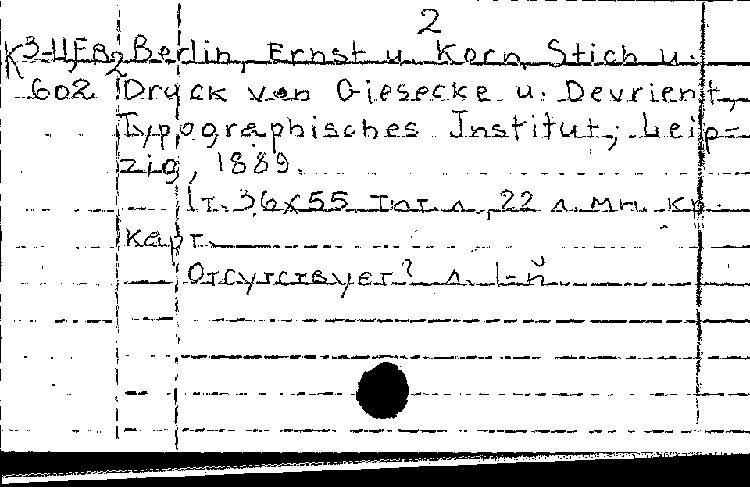 2
К3-ЦЕВ2 Berlin, Ernst u. Korn, Stich u.
602 Druck von Giesecke u. Devrient,
Typographisches Institut, Leip-
zig, 1889.
1т. 36х55 тит. л., 22 л. мн. кр.
карт.
Отсутствует? л. 1-й